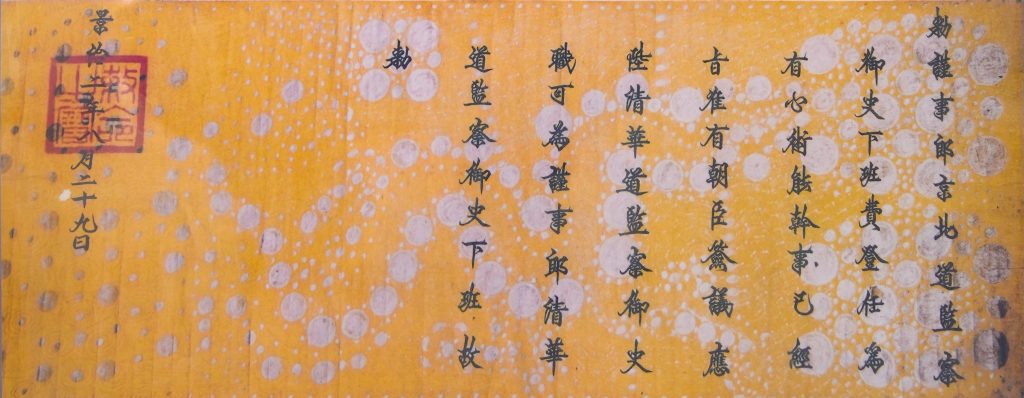 勅謹事郎京北道監察
御史下班費登任為
有心術能幹事已經
旨准有朝臣簽議應
陞清華道監察御史
職可為謹事郎清華
道監察御史下班故
勅
景治年八月二十九日
敕命之寶